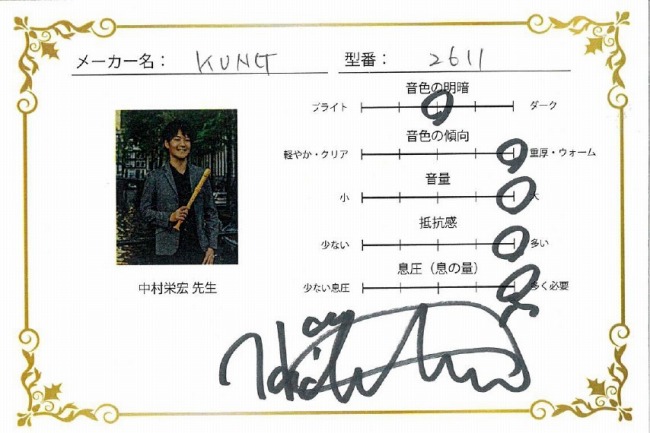 メーカー名： KUNG 型番： 2611
音色の明暗
ブライト ダーク
音色の傾向
軽やか・クリア 重厚・ウォーム
音量
小 大
抵抗感
少ない 多い
息圧（息の量）
少ない息圧 多く必要
中村栄宏 先生